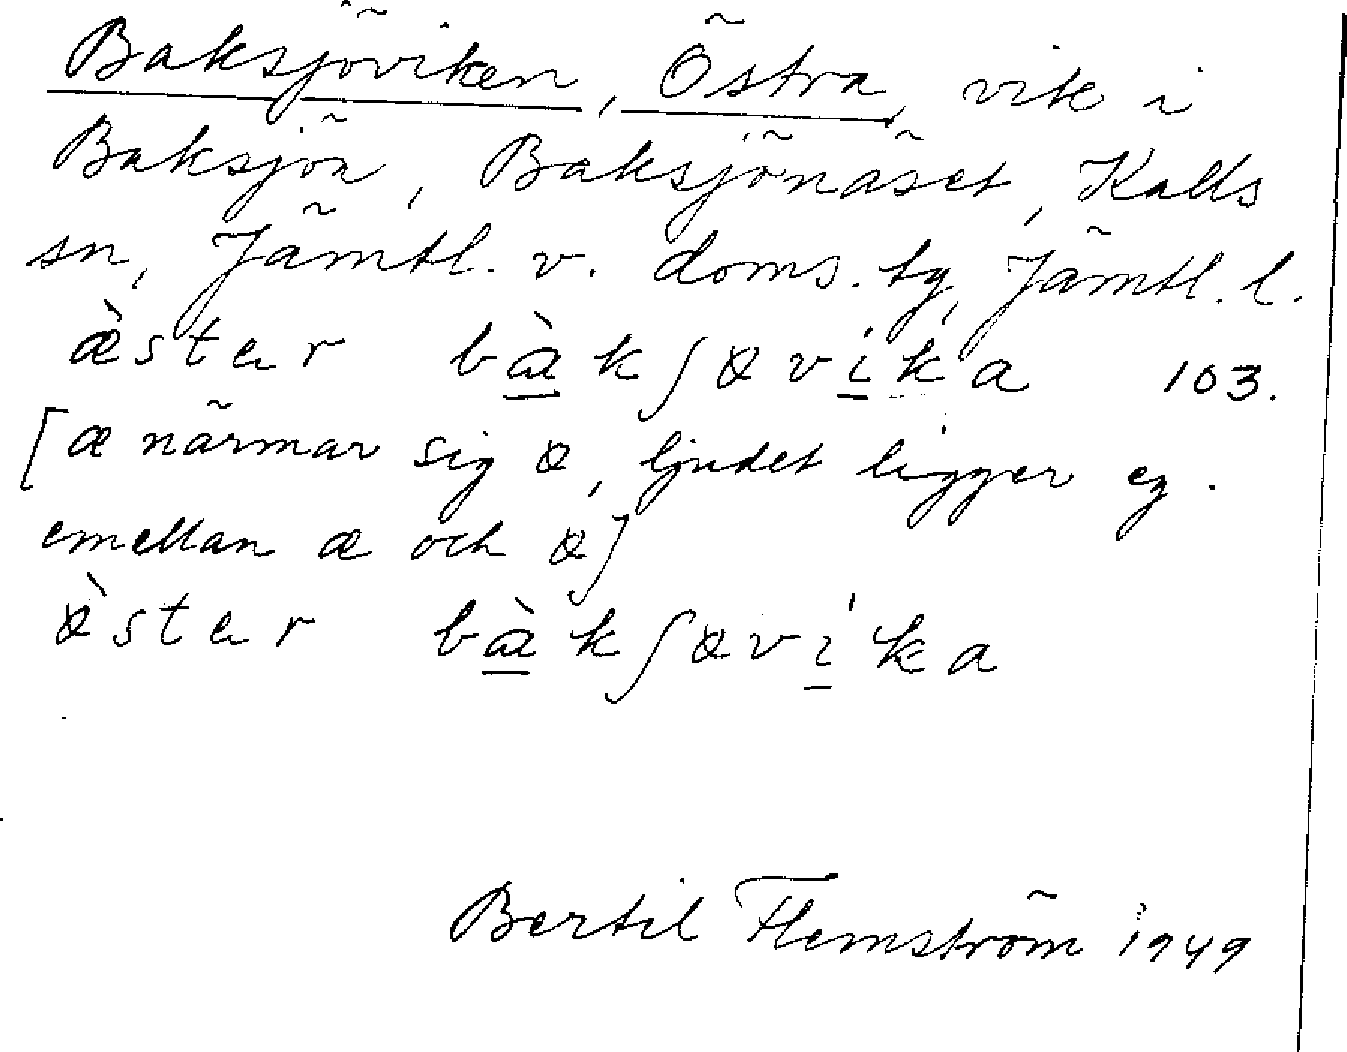 Baksjöviken, Östra, vik i
Baksjön, Baksjönäset, Kalls
sn, Jämtl. v. doms. tg, Jämtl. l.
æ̀ster bàkʃøvíka 103.
[æ närmar sig ø, ljudet ligger eg.
emellan æ och ø]
ø̀ster bàkʃøvíka
Bertil Flemström 1949